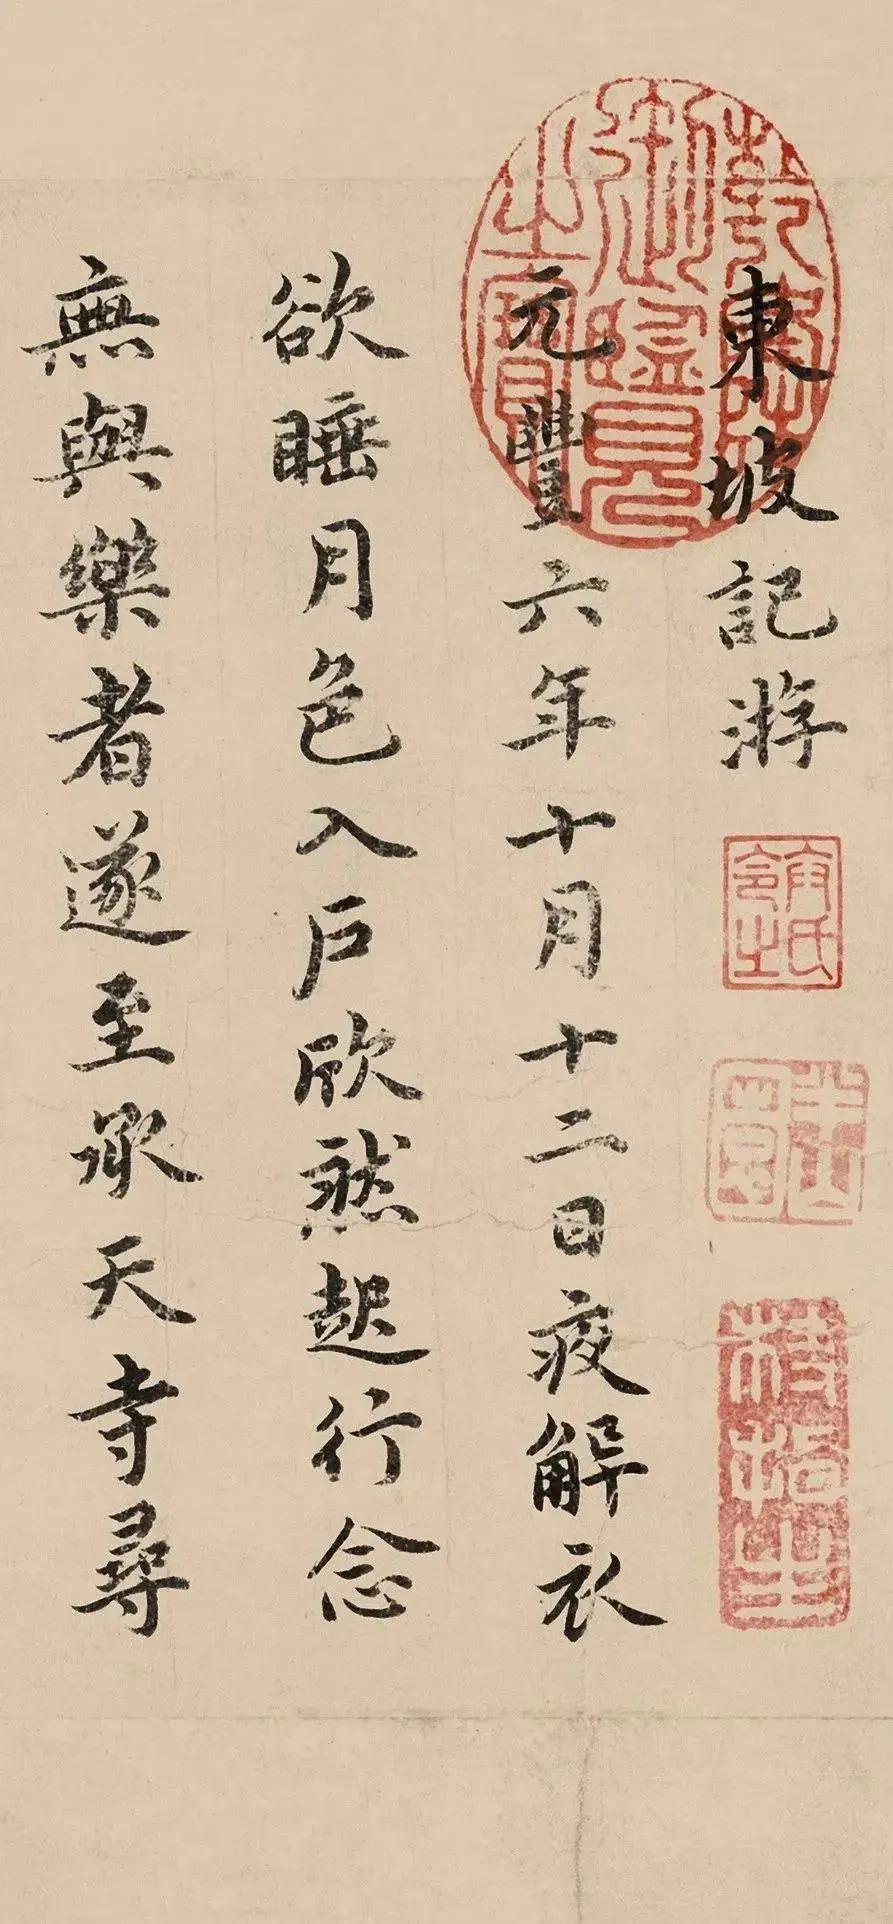 東坡記游
元豐六年十月十二日夜解衣
欲睡月色入戶欣然起行念
無與樂者遂至承天寺尋
御覽之寶